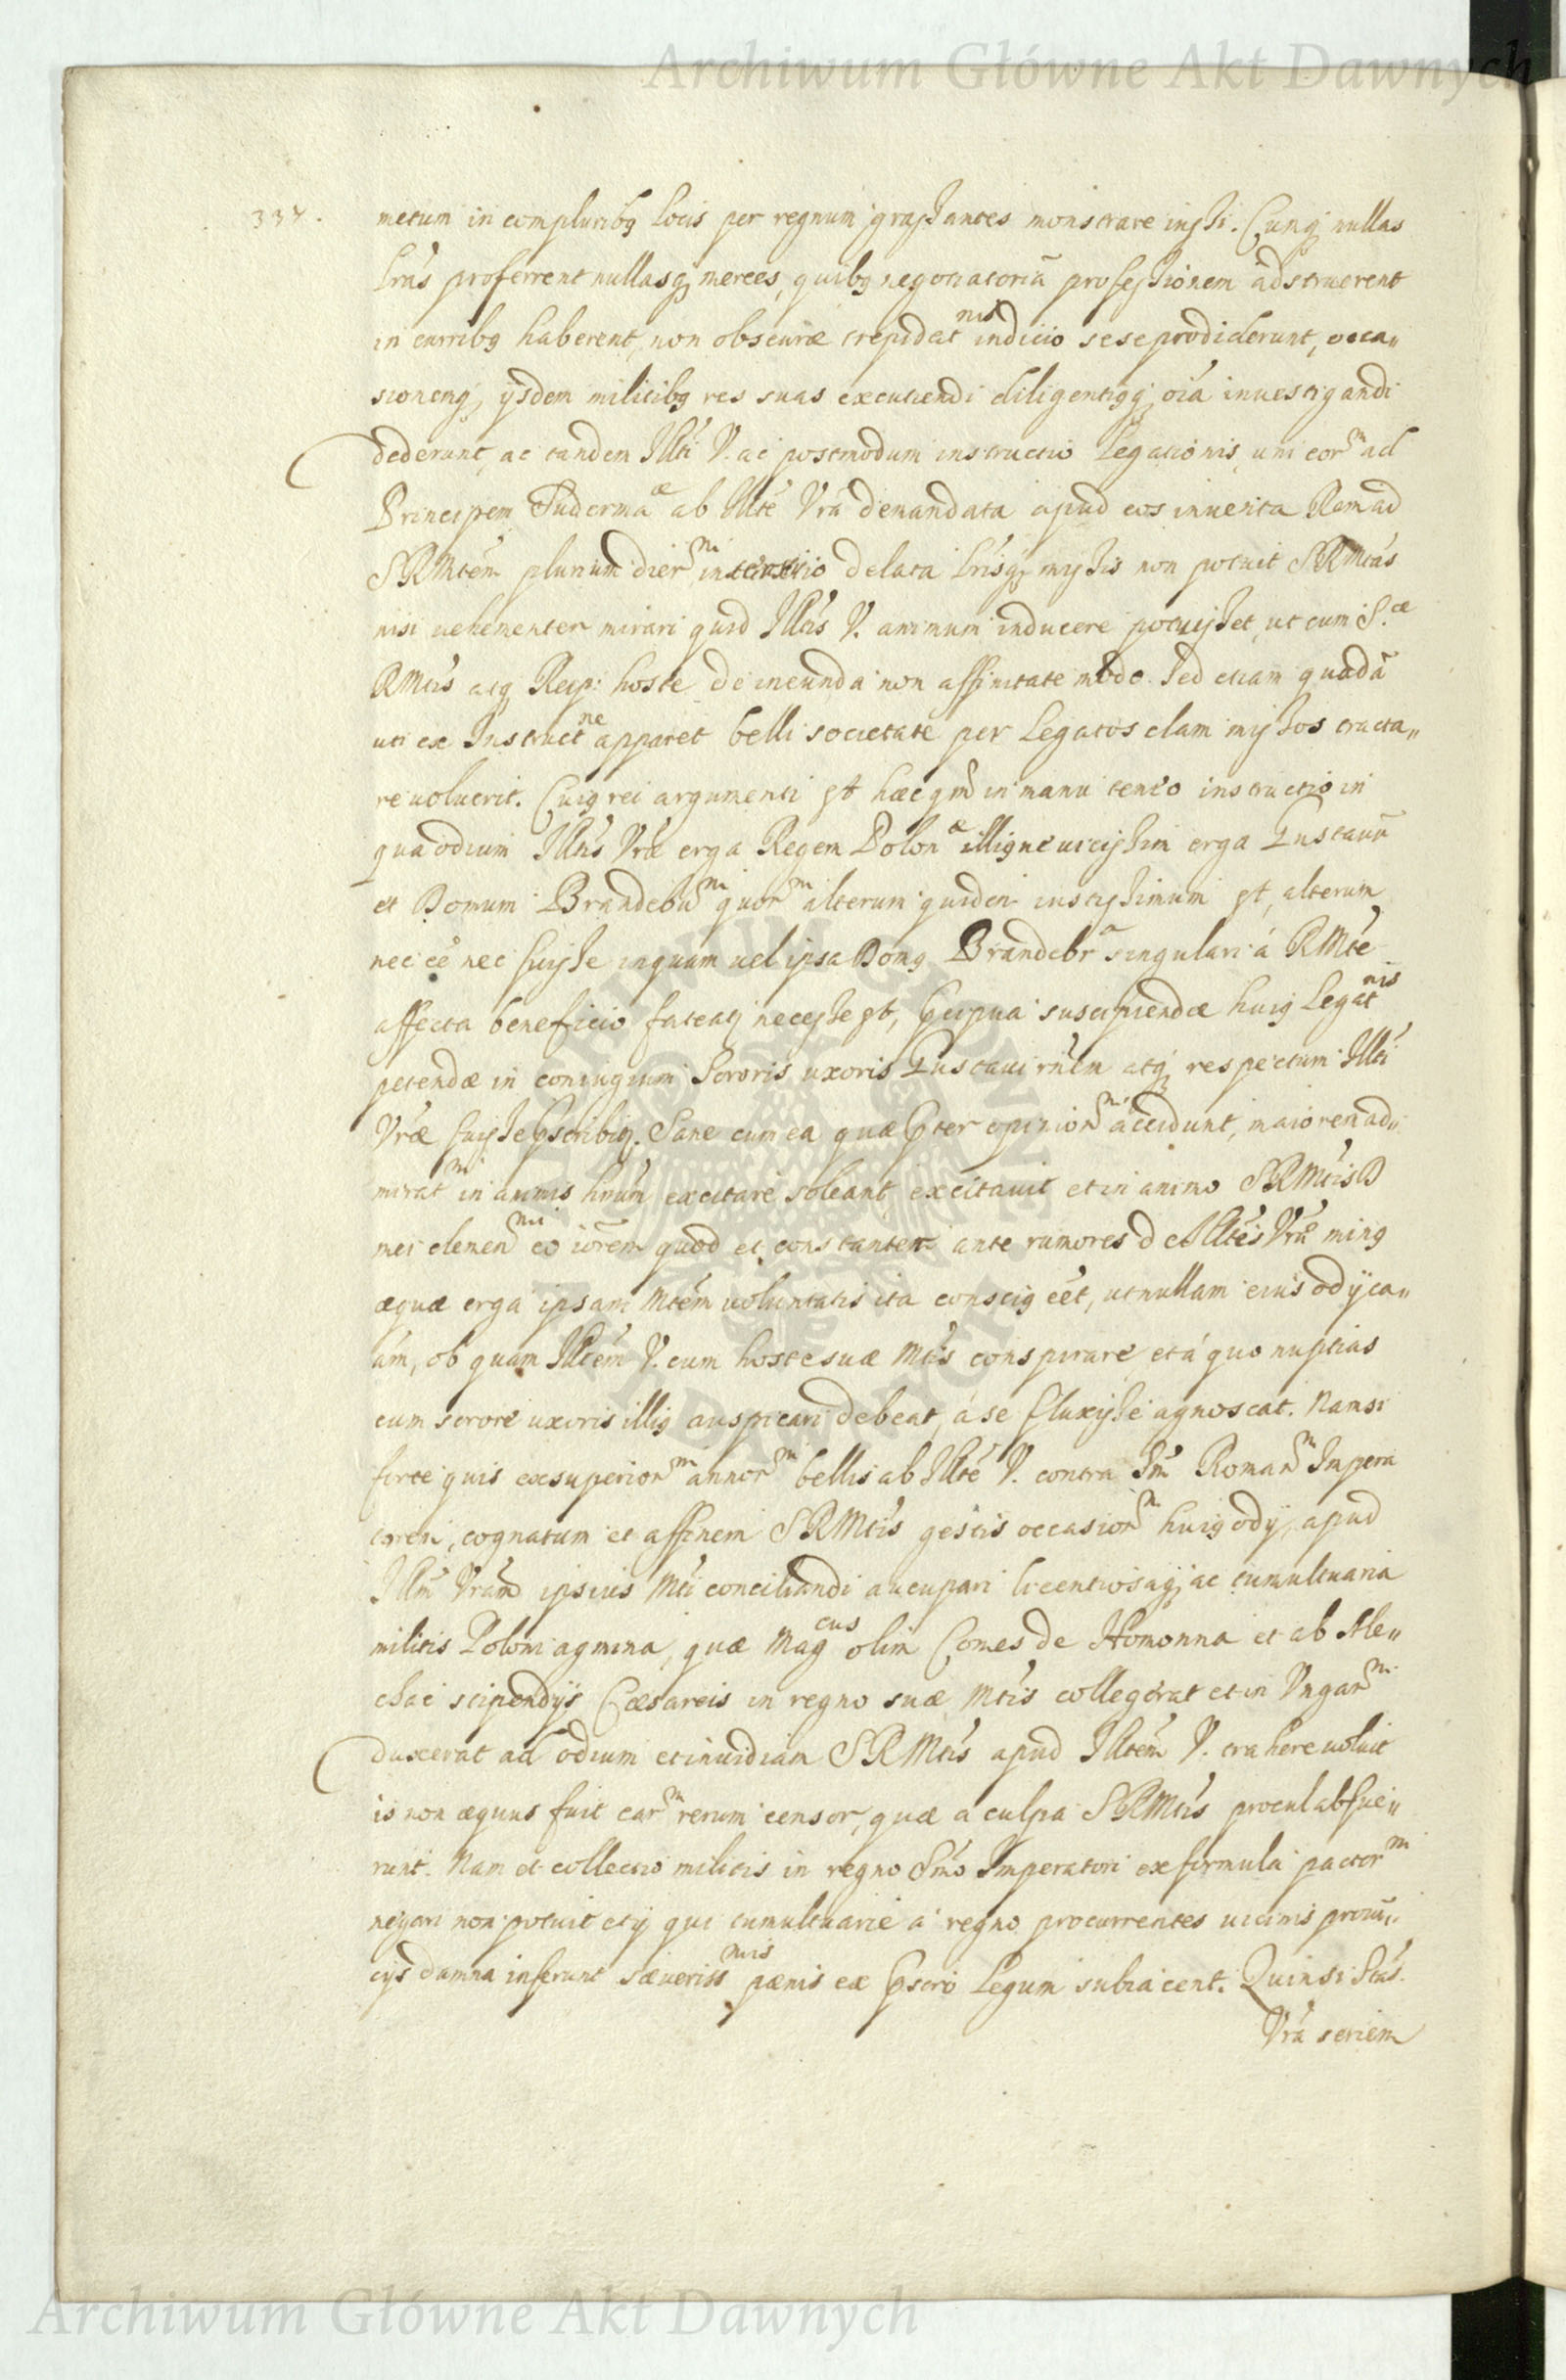 Archiwum Główne Akt Dawnych
334.
metum in compluribꝫ locis per regnum graſsantes monstrare iuſsi. Cumqꝫ nullas
lrás proferrent nullasqꝫ merces, quibꝫ negotiatoriā profeſsionem adstruerent
in curribꝫ haberent, non obscuræ trepidatⁿⁱˢ indicio sese prodiderunt, occa„
sionemqꝫ ijsdem militibꝫ res suas excutiendi diligentiqꝫ oia inuestigandi
dederunt, ac tandem Illti V. ac postmodum instructio Legationis, uni eorᵐ ad
Principem Sudermaᵃᵉ ab Illte Vrá demandata apud eos inuenta Rem ad
SRMtém plurium dierᵐ delata lrísqꝫ miſsis non potuit SRMtás
nisi uehementer mirari quid Illtás V. animum inducere potuiſset, ut cum S.ᵃᵉ
RMtis atqꝫ Reip: hoste de ineunda non affinitate modo. Sed etiam quadā
uti ex Instructⁿᵉ apparet belli societate per Legatos clam miſsos tracta„
re uoluerit. Cuiꝰ rei argumenti est hæc qm̄ in manu teneo instructio in
qua odium Illtis Vræ erga Regem Polonᵃᵉ erga Gustauū
et Domum Brandebuᵐ quorᵐ alterum quidem iustiſsimum est, alterum
nec eē nec fuiſse inquam uel ipsa Domꝰ Brandebrᵃ singulari á RMte
affecta beneficio fateatꝫ neceſse est, Præcipua suscipiendæ huiꝰ Legatⁿⁱˢ
petendæ in coniugium Sororis uxoris Gustaui rnem atqꝫ respectum Illti
Vræ fuiſse Præscribitꝫ. Sane cum ea quæ Præter opinionᵐ accidunt, maiorem ad„
miratᵐ in animis hnum excitare soleant, excitauit et in animo SRMtis D
mei clemenᵐⁱ eo iorem quod et constantem ante rumores de Illtis Vræ minꝰ
æqua erga ipsam Mtém uoluntatis ita consciꝰ eēt, ut nullam eius odij ca„
ām, ob quam Illtém V. cum hoste suæ Mtis conspirare et á quo nuptias
cum sorore uxoris illiꝰ auspicari debeat, á se fluxiſse agnoscat. Nam si
forte quis ex superiorᵐ annorᵐ bellis ab Illte V. contra Sm̄ Romanᵐ Impera
torem, cognatum et affinem SRMtis gestis occasionᵐ huiꝰ odij, apud
Illm̄ Vram ipsius Mti conciliandi aucupari licentiosaqꝫ ac tumultuaria
militis Poloni agmina, quæ Magᶜᵘˢ olim Comes de Homonna et ab Ale„
chac stipendijs Cæsareis in regno suæ Mtis collegerat et in Vngarᵐ
duxerat ad odium et inuidiam SRMtis apud Illtém V. trahere uoluit
is non æquus fuit earᵐ rerum censor, quæ a culpa SRMtis procul abfue„
runt. Nam et collectio militis in regno Smo Imperatori ex formula pactorᵐ
negari non potuit et ij qui tumultuarie a regno procurrentes uicinis proui„
cijs damna inferunt Sæuerissᵐⁱˢ pænis ex Præscro Legum subiacent. Quin si Stas.
Vrá seriem
Archiwum Główne Akt Dawnych